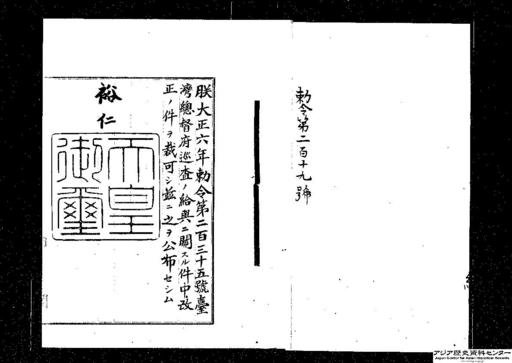 勅令第二百十九號
朕大正六年勅令第二百三十五號臺
灣總督府巡査ノ給與ニ關スル件中改
正ノ件ヲ裁可シ茲ニ之ヲ公布セシム
裕仁
天皇
御璽
アジア歴史資料センター
Japan Center for Asian Historical Records